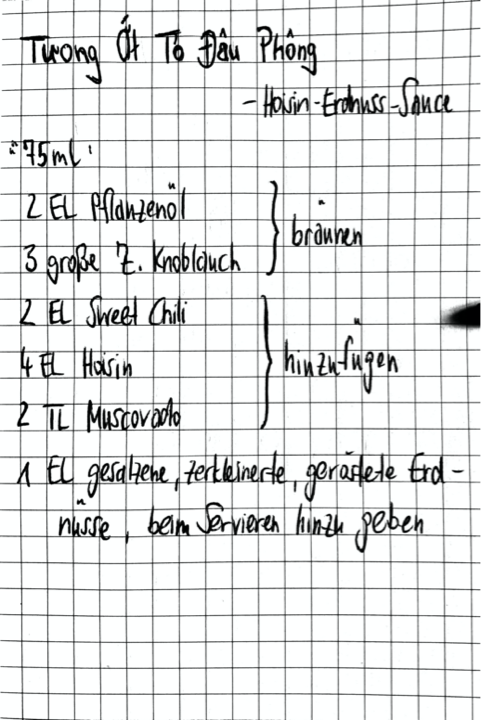 Tương Ớt Tỏ Đâu Phông
- Hoisin-Erdnuss-Sauce
"75ml"
2 EL Pflanzenöl
3 große Z. Knoblauch
} bräunen
2 EL Sweet Chili
4 EL Hoisin
2 TL Muscovado
} hinzufügen
1 EL gesalzene, zerkleinerte, geröstete Erd-
nüsse, beim Servieren hinzu geben